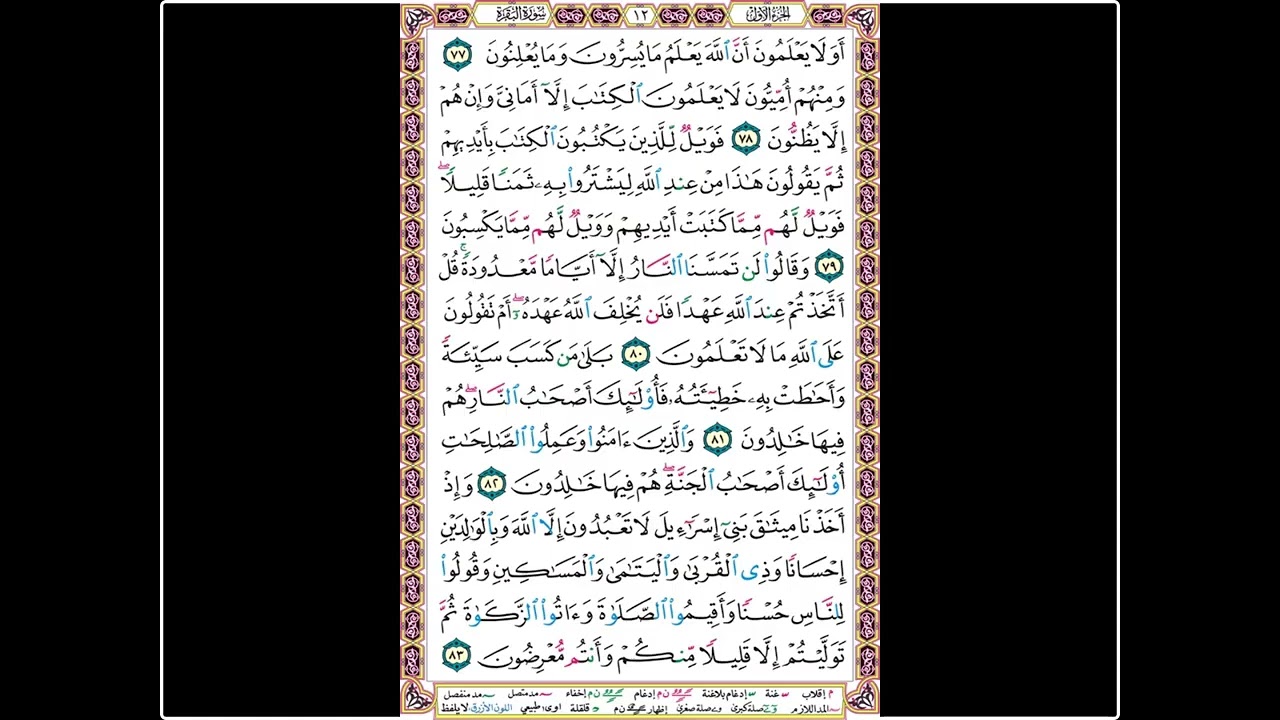 الجزء الأول ١٢ سورة البقرة
أَوَلَا يَعْلَمُونَ أَنَّ ٱللَّهَ يَعْلَمُ مَا يُسِرُّونَ وَمَا يُعْلِنُونَ ٧٧
وَمِنْهُمْ أُمِّيُّونَ لَا يَعْلَمُونَ ٱلْكِتَٰبَ إِلَّآ أَمَانِىَّ وَإِنْ هُمْ
إِلَّا يَظُنُّونَ ٧٨ فَوَيْلٌ لِّلَّذِينَ يَكْتُبُونَ ٱلْكِتَٰبَ بِأَيْدِيهِمْ
ثُمَّ يَقُولُونَ هَٰذَا مِنْ عِندِ ٱللَّهِ لِيَشْتَرُوا۟ بِهِۦ ثَمَنًا قَلِيلًا ۖ
فَوَيْلٌ لَّهُم مِّمَّا كَتَبَتْ أَيْدِيهِمْ وَوَيْلٌ لَّهُم مِّمَّا يَكْسِبُونَ
٧٩ وَقَالُوا۟ لَن تَمَسَّنَا ٱلنَّارُ إِلَّآ أَيَّامًا مَّعْدُودَةً ۚ قُلْ
أَتَّخَذْتُمْ عِندَ ٱللَّهِ عَهْدًا فَلَن يُخْلِفَ ٱللَّهُ عَهْدَهُۥٓ ۖ أَمْ تَقُولُونَ
عَلَى ٱللَّهِ مَا لَا تَعْلَمُونَ ٨٠ بَلَىٰ مَن كَسَبَ سَيِّئَةً
وَأَحَٰطَتْ بِهِۦ خَطِيٓـَٔتُهُۥ فَأُو۟لَٰٓئِكَ أَصْحَٰبُ ٱلنَّارِ ۖ هُمْ
فِيهَا خَٰلِدُونَ ٨١ وَٱلَّذِينَ ءَامَنُوا۟ وَعَمِلُوا۟ ٱلصَّٰلِحَٰتِ
أُو۟لَٰٓئِكَ أَصْحَٰبُ ٱلْجَنَّةِ ۖ هُمْ فِيهَا خَٰلِدُونَ ٨٢ وَإِذْ
أَخَذْنَا مِيثَٰقَ بَنِىٓ إِسْرَٰٓءِيلَ لَا تَعْبُدُونَ إِلَّا ٱللَّهَ وَبِٱلْوَٰلِدَيْنِ
إِحْسَانًا وَذِى ٱلْقُرْبَىٰ وَٱلْيَتَٰمَىٰ وَٱلْمَسَٰكِينِ وَقُولُوا۟
لِلنَّاسِ حُسْنًا وَأَقِيمُوا۟ ٱلصَّلَوٰةَ وَءَاتُوا۟ ٱلزَّكَوٰةَ ثُمَّ
تَوَلَّيْتُمْ إِلَّا قَلِيلًا مِّنكُمْ وَأَنتُم مُّعْرِضُونَ ٨٣
م إقلاب غنة إدغام بلاغنة ن م إدغام ن م إخفاء مد متصل مد منفصل
المد اللازم صلة كبرى صلة صغرى إظهار ن م قلقلة اوى: طبيعي اللون الأزرق: لا يلفظ